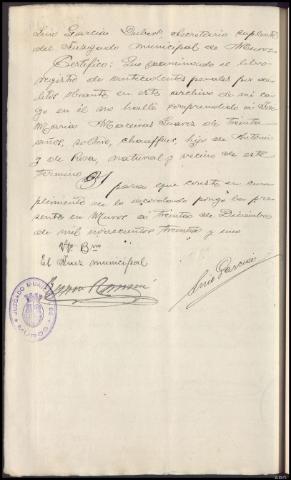 Luis García Dubert, secretario suplente
del Juzgado municipal de Muros.
Certifico: Que examinado el libro
registro de antecedentes penales por de-
litos obrante en este archivo de mi car-
go en él no halla comprendido a José
María Maceiras Suárez de treinta
años, soltero, chauffeur, hijo de Antonio
y de Rosa, natural y vecino de este
término.
Y para que conste en cum-
plimento de lo acordado pongo la pre-
sente en Muros a treinta de Diciembre
de mil novecientos treinta y uno
Vº Bno
El Juez municipal
Luis García
JUZGADO MUNICIPAL DE
MUROS